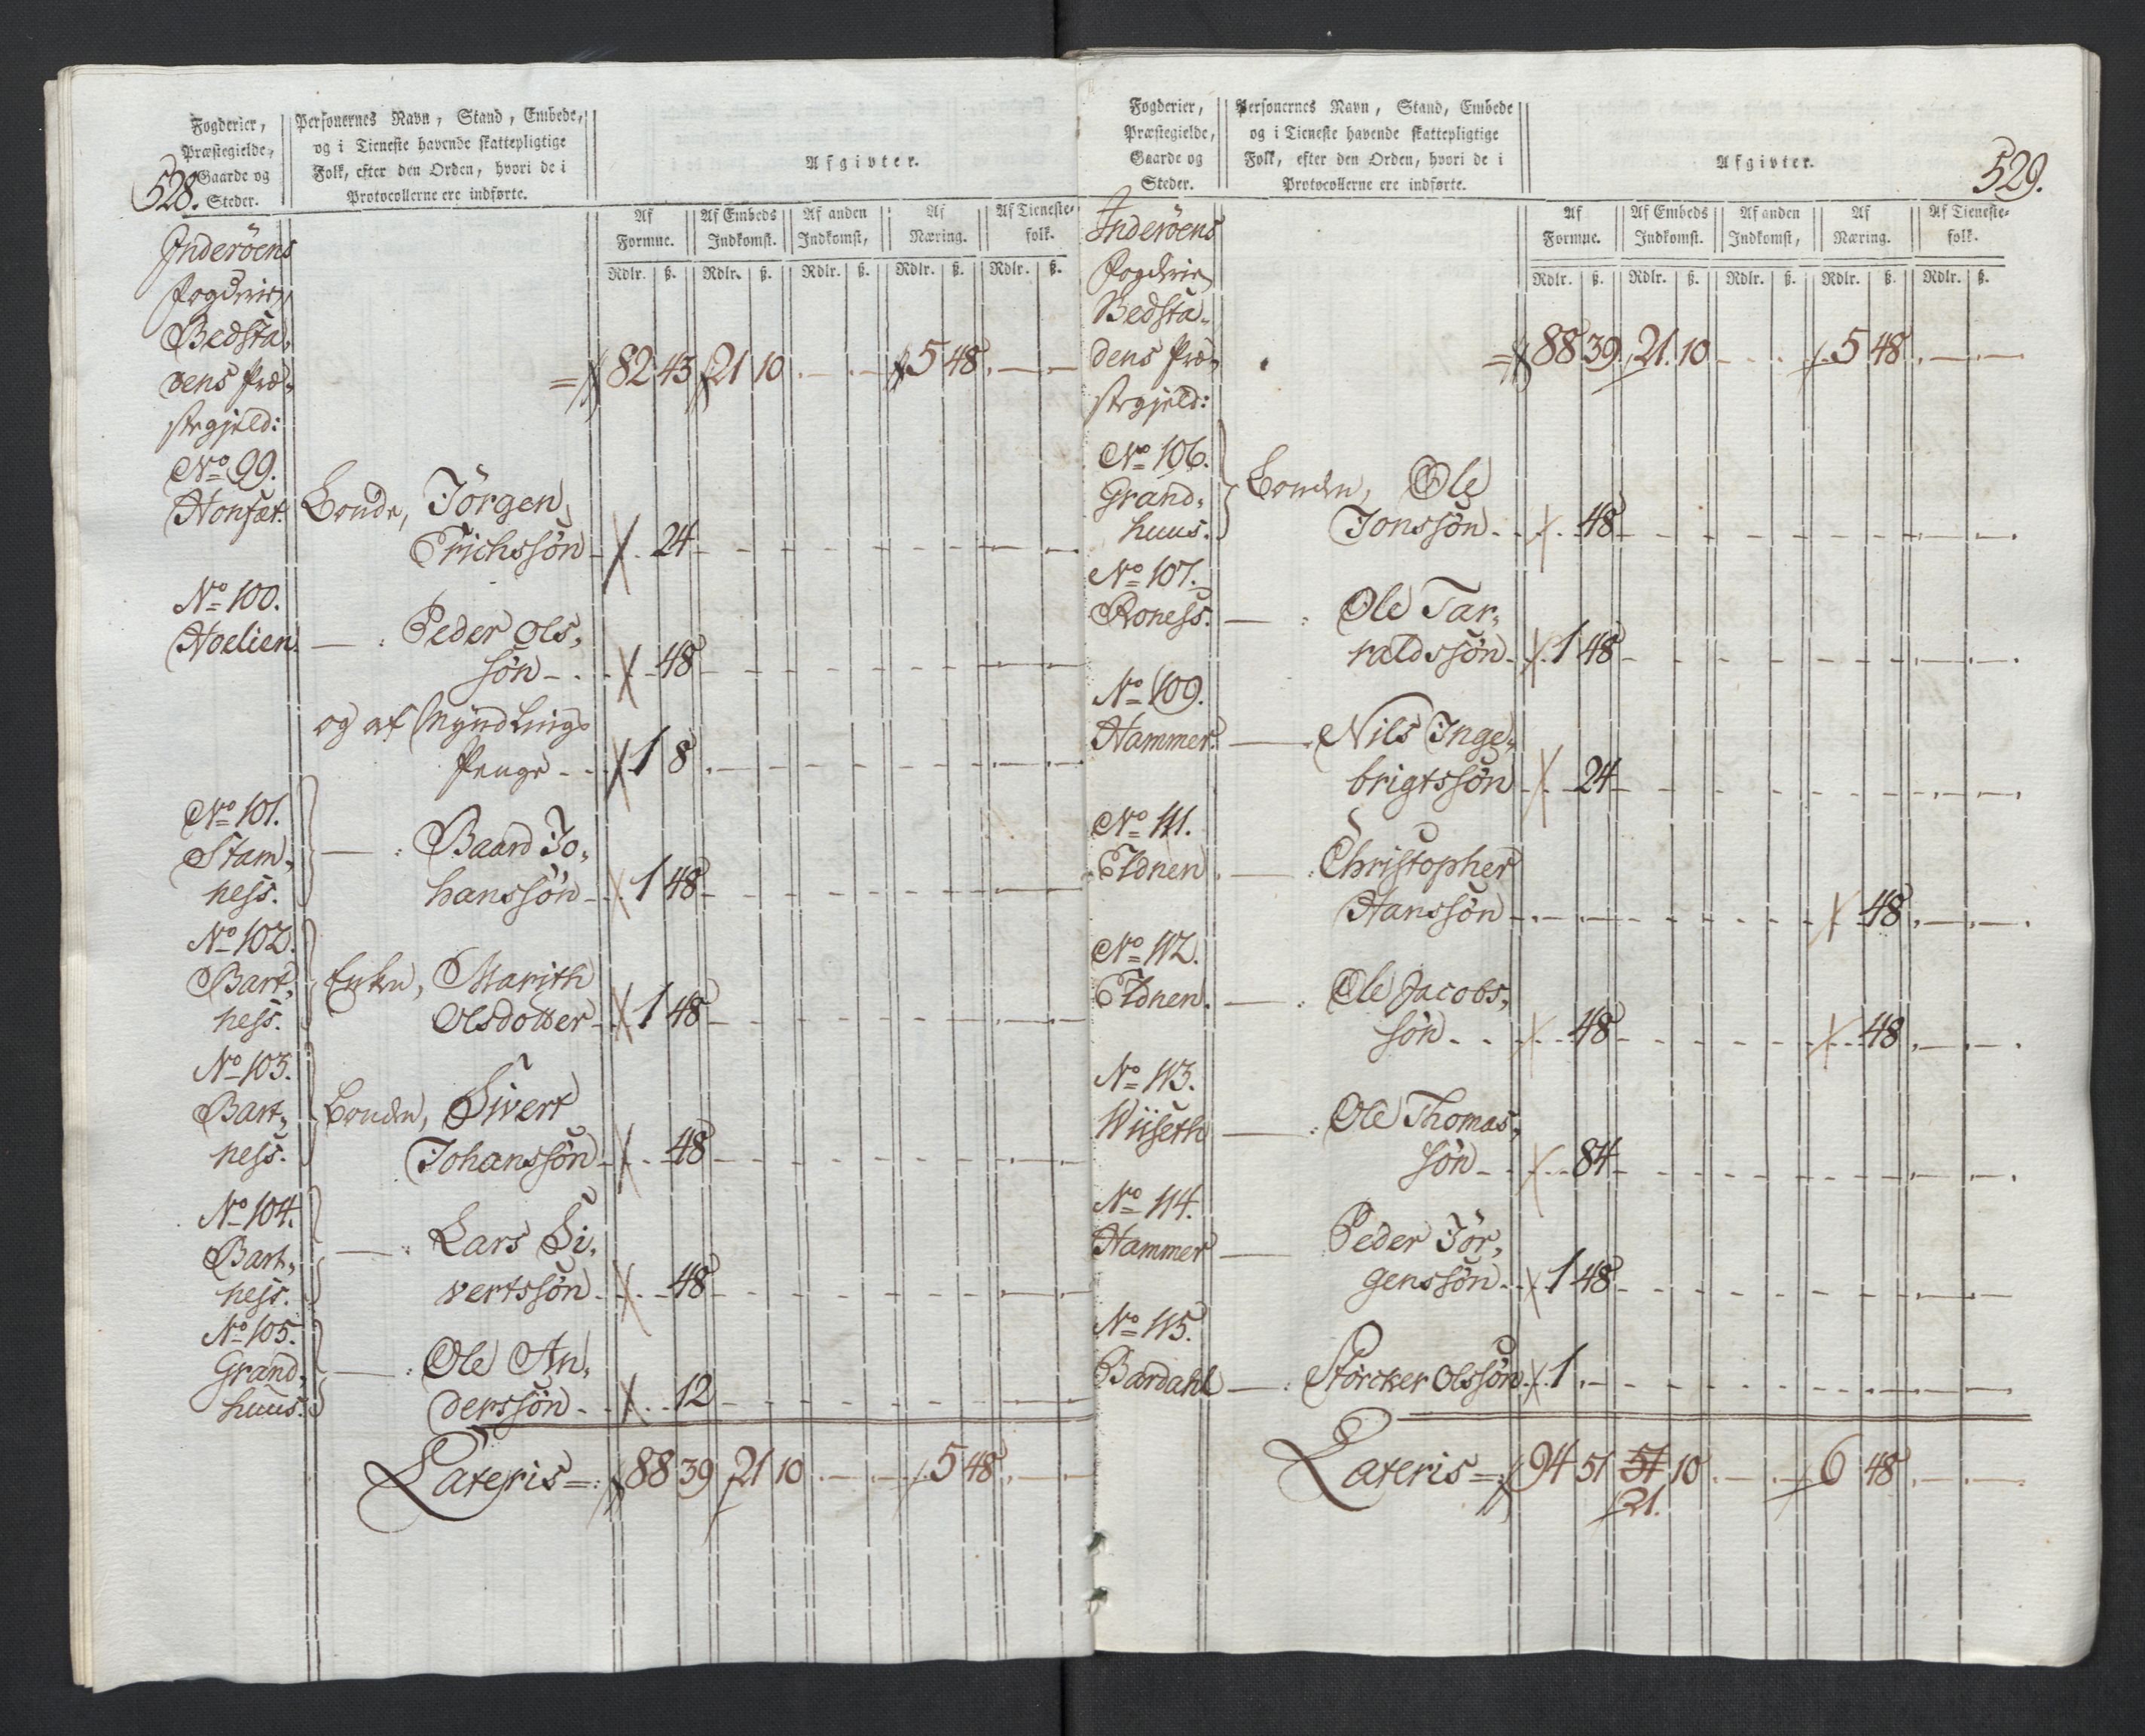 Fogderier,
Præstegielde,
Gaarde og
Steder.
528.
Personernes Navn, Stand, Embede,
og i Tieneste havende skattepligtige
Folk, efter den Orden, hvori de i
Protocollerne ere indførte.
Afgivter.
Af Formue. Af Embeds Indkomst. Af anden Indkomst, Af Næring. Af Tieneste-folk.
Rdlr. ß. Rdlr. ß. Rdlr. ß. Rdlr. ß. Rdlr. ß.
Inderöens
Fogderie,
Bedsta-
dens Præ-
stegjeld:
82 43 21 10 5 48
No 99.
Honset. Bonde, Jörgen
Erichssön 24
No 100.
Hoelien. — : Peder Ols-
søn 48
og af Myndlings
Penge 1 8
No 101.
Stam-
ness. — : Baard Jo-
hanssön 1 48
No 102.
Bart-
ness. Enken, Marith
Olsdotter 1 48
No 103.
Bart-
ness. Bonden, Sivert
Johanssön 48
No 104.
Bart-
ness. — : Lars Si-
vertssön 48
No 105.
Grand-
huus. — : Ole An-
derssön 12
Lateris = 88 39 21 10 5 48
Fogderier,
Præstegielde,
Gaarde og
Steder.
Personernes Navn, Stand, Embede
og i Tieneste havende skattepligtige
Folk, efter den Orden, hvori de i
Protocollerne ere indførte.
Afgivter.
529.
Af Formue. Af Embeds Indkomst. Af anden Indkomst, Af Næring. Af Tieneste-folk.
Rdlr. ß. Rdlr. ß. Rdlr. ß. Rdlr. ß. Rdlr. ß.
Inderöens
Fogderie
Bedsta-
dens Præ-
stegjeld:
88 39 21. 10 5 48
No 106.
Grand-
huus. Bonden, Ole
Jonssön 48
No 107.
Roness. — : Ole Tar-
raldssön 1 48
No 109.
Hammer. — Nils Inge-
brigtssön 24
No 111.
Eldnen. — : Christopher
Hanssön 48
No 112.
Eldnen. — : Ole Jacobs-
søn 48 48
No 113.
Wiiseth — : Ole Thomas-
søn 84
No 114.
Hammer — Peder Jör-
genssön 1 48
No 115.
Bardahl — : Störcker Olssön 1
Lateris = 94 51 51 10 6 48
21.